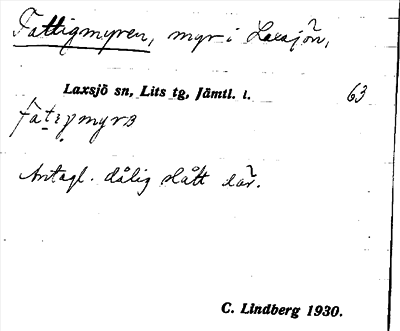 Fattigmyren, myr i Laxsjön,
Laxsjö sn, Lits tg, Jämtl. l. 63
Antagl. dålig slått där.
C. Lindberg 1930.